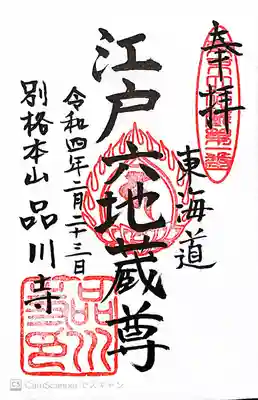 奉拝
東海道
江戸六地蔵尊
令和四年二月二十三日
別格本山 品川寺
CamScanner でスキャン